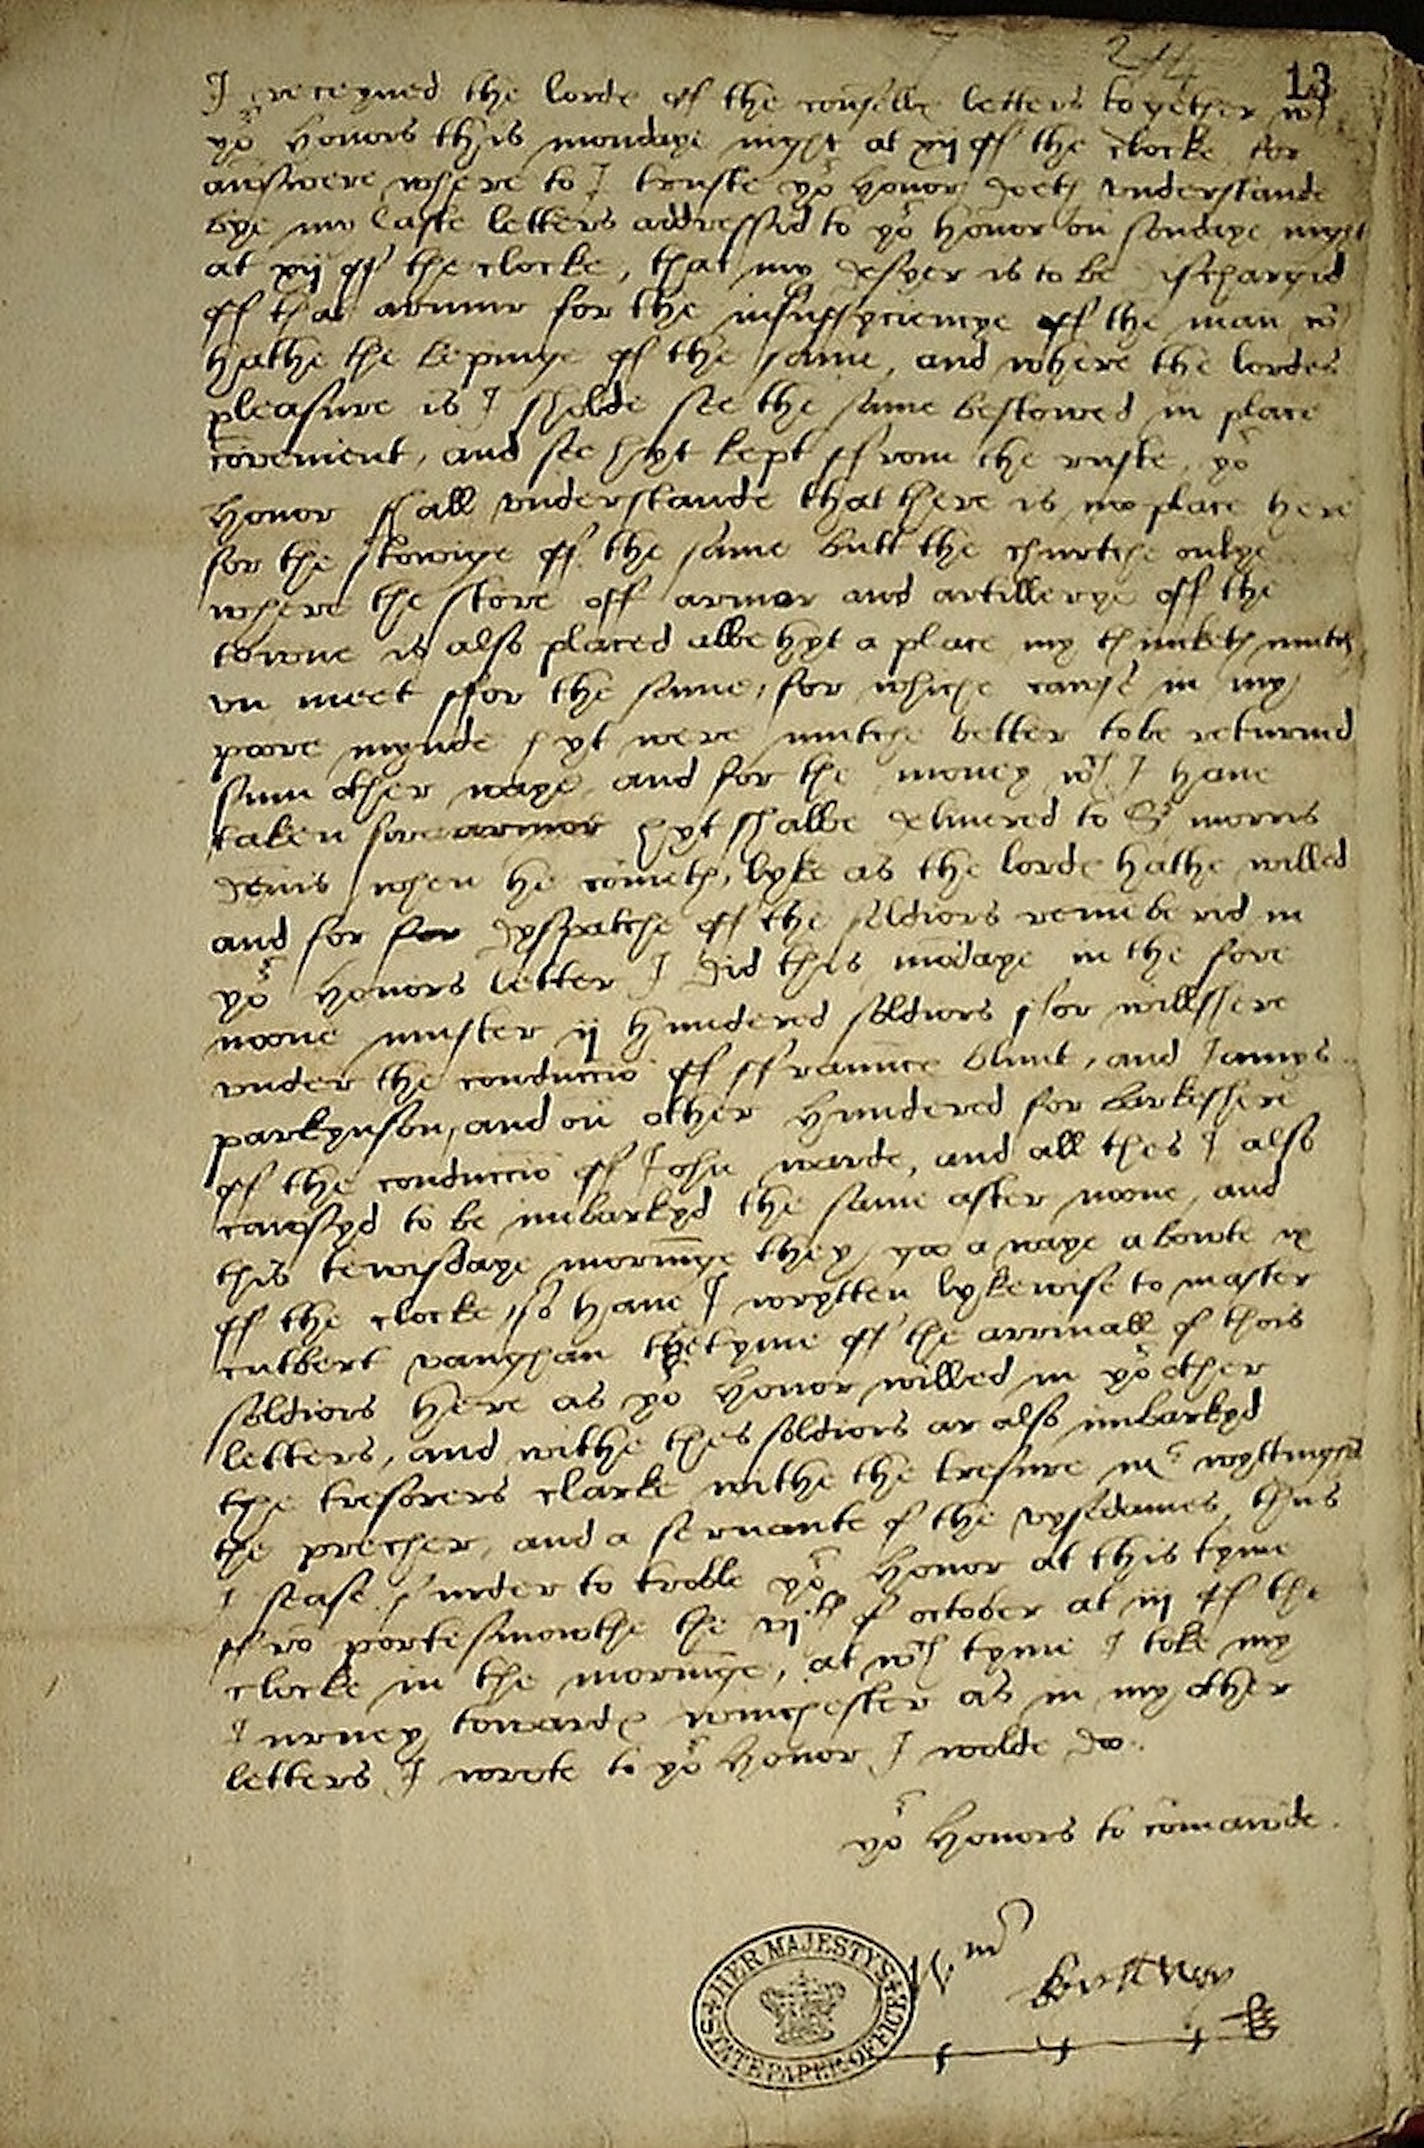 244
13
I receyved the lordes off the counselle letters together wt
yor honors this mondaye nyght at xij off the clocke, for
answere where to I truste yor honor doeth understande
bye my laste letters addressyd to yor honor on sondaye nyght
at xij off the clocke, that my desyer is to be discharyd
off that armur for the insuffyciencye off the man wch
hathe the kepinge off the same, and where the lordes
pleasure is I sholde see the same bestowed in place
covenient, and see hyt kept ffrom the ruste, yor
honor shall understande that there is no place here
for the stowige off the same butt the churtche onlye
where the store off armor and artillerye off the
towne is also placed albe hyt a place my thincketh mutch
un meet ffor the same, for whiche cawse in my
poore mynde hyt were mutche better to be returnid
sum other waye, and for the money wch I have
taken hyt shalbe delivered to Sr morris
denis when he cometh, lyke as the lordes hathe willed
and for for dyspatche off the soldiors remēberid in
yor honors letter I did this mōdaye in the fore
noone muster ij hundered soldiors ffor willsshere
under the conduccio off ffraunce blunt, and Iamys
parkynson, and on other hundered for barkeshere
off the conduccio off John warde, and all thes I also
cawsyd to be imbarkyd the same after noone, and
this tewisdaye morninge they goo a waye abowte ix
off the clocke, so have I wrytten lykewise to master
cutbert vaughan the tyme off the arrivall of thois
soldiors here as yor honor willed in yor other
letters, and withe thes soldiors ar also imbarkyd
the tresorers clarke withe the tresure mr wyttingam
the precher, and a servante of the vysedames, thus
I sease furder to troble yor honor at this tyme
ffro portesmowthe the vjth of october at iij off the
clocke in the morninge, at wch tyme I toke my
Iurney towardes winchester as in my other
letters I wrote to yor honor I wolde do.
yor honors to comawnde.
Wm
HER MAJESTYS STATE PAPER OFFICE